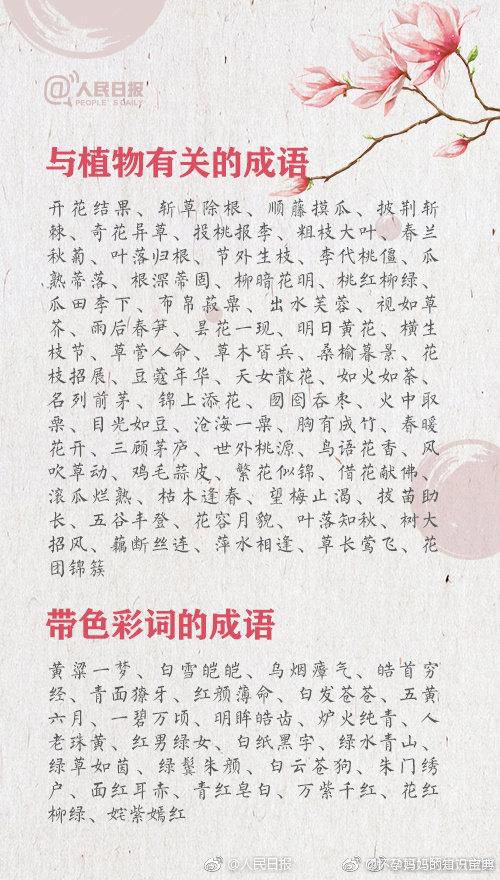 @人民日报
PEOPLE'S DAILY
与植物有关的成语
开花结果、斩草除根、顺藤摸瓜、披荆斩
棘、奇花异草、投桃报李、粗枝大叶、春兰
秋菊、叶落归根、节外生枝、李代桃僵、瓜
熟蒂落、根深蒂固、柳暗花明、桃红柳绿、
瓜田李下、布帛菽粟、出水芙蓉、视如草
芥、雨后春笋、昙花一现、明日黄花、横生
枝节、草菅人命、草木皆兵、桑榆暮景、花
枝招展、豆蔻年华、天女散花、如火如荼、
名列前茅、锦上添花、囫囵吞枣、火中取
栗、目光如豆、沧海一粟、胸有成竹、春暖
花开、三顾茅庐、世外桃源、鸟语花香、风
吹草动、鸡毛蒜皮、繁花似锦、借花献佛、
滚瓜烂熟、枯木逢春、望梅止渴、拔苗助
长、五谷丰登、花容月貌、叶落知秋、树大
招风、藕断丝连、萍水相逢、草长莺飞、花
团锦簇
带色彩词的成语
黄粱一梦、白雪皑皑、乌烟瘴气、皓首穷
经、青面獠牙、红颜薄命、白发苍苍、五黄
六月、一碧万顷、明眸皓齿、炉火纯青、人
老珠黄、红男绿女、白纸黑字、绿水青山、
绿草如茵、绿鬓朱颜、白云苍狗、朱门绣
户、面红耳赤、青红皂白、万紫千红、花红
柳绿、姹紫嫣红
@人民日报
@怀孕妈妈的知识宝典